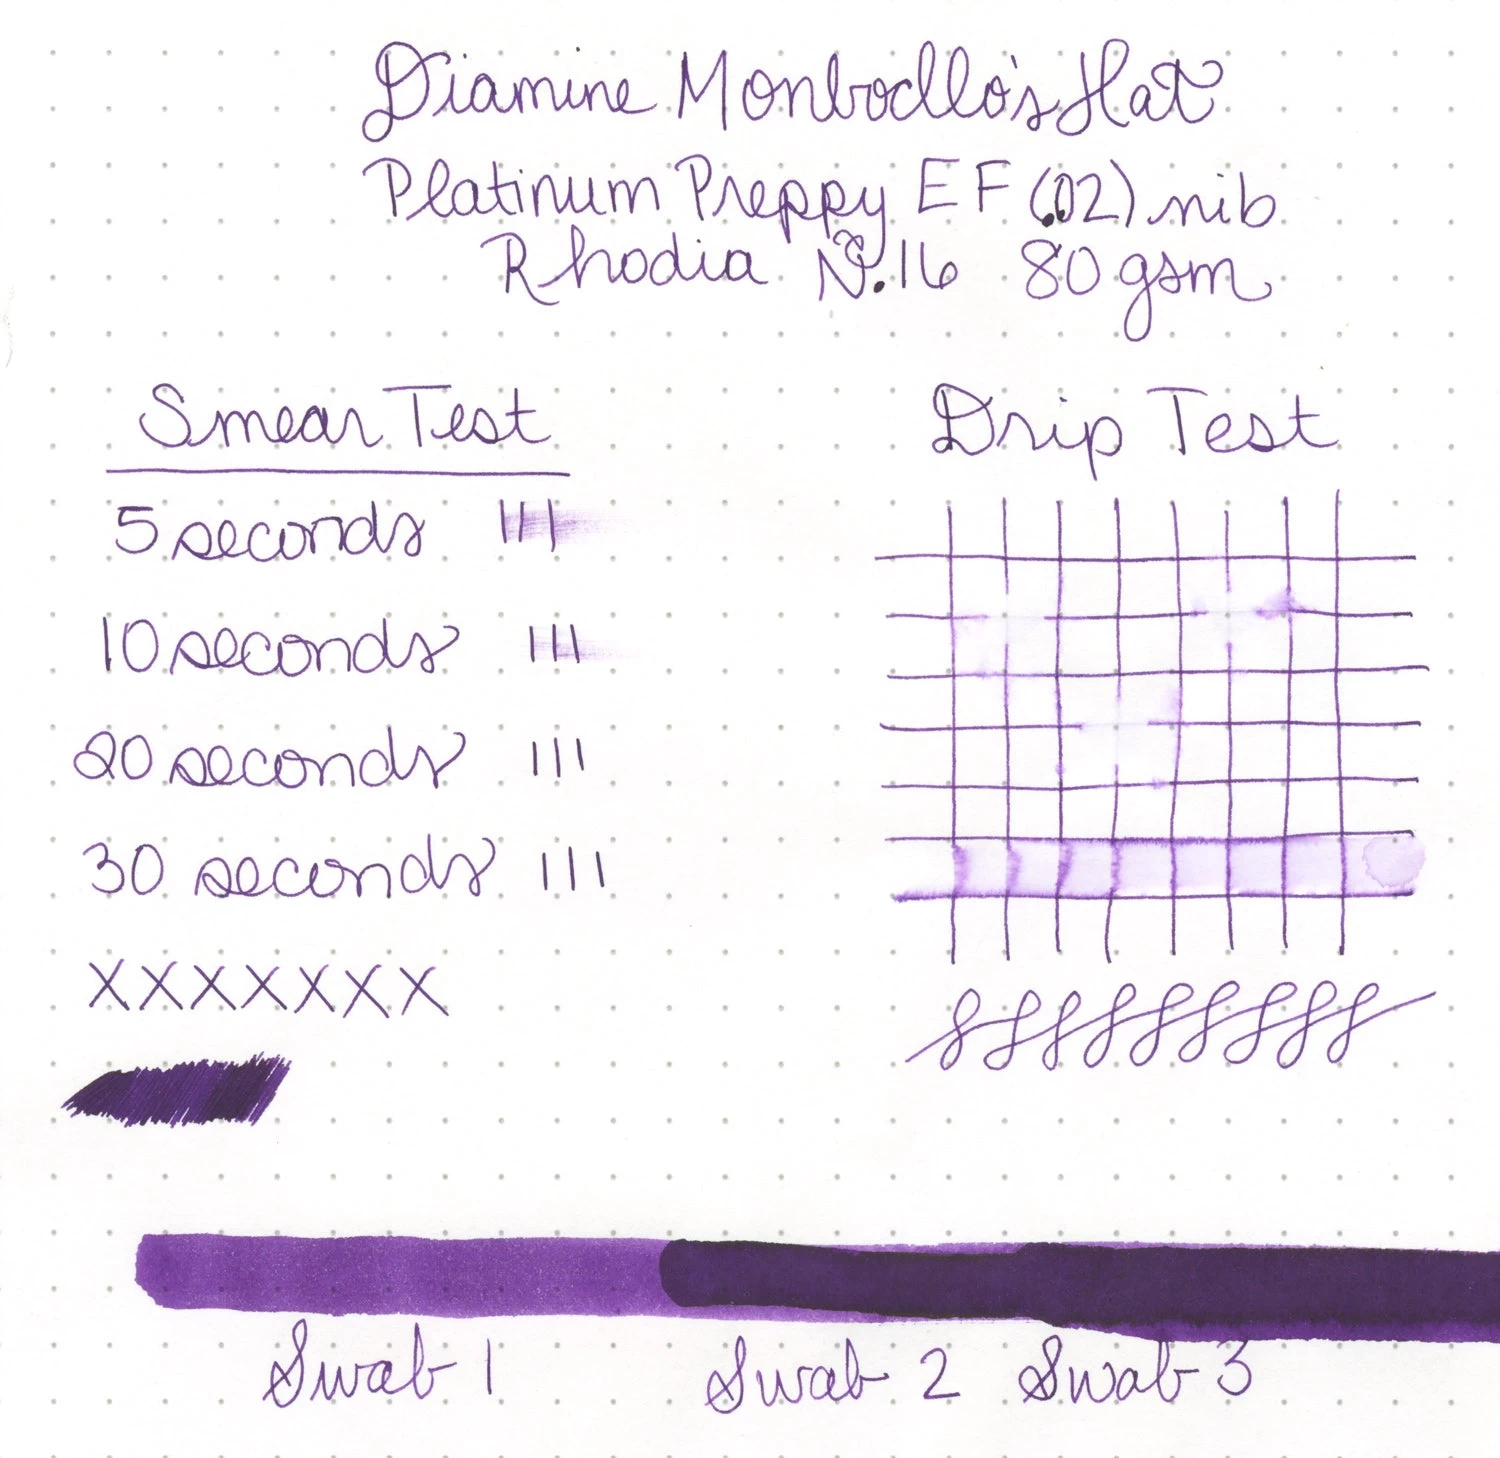 Diamine Monboddo's Hat
Platinum Preppy EF (.02) nib
Rhodia N.16 80 gsm
Smear Test
5 seconds III
10 seconds III
20 seconds III
30 seconds III
XXXXXXX
Drip Test
Swab 1
Swab 2
Swab 3